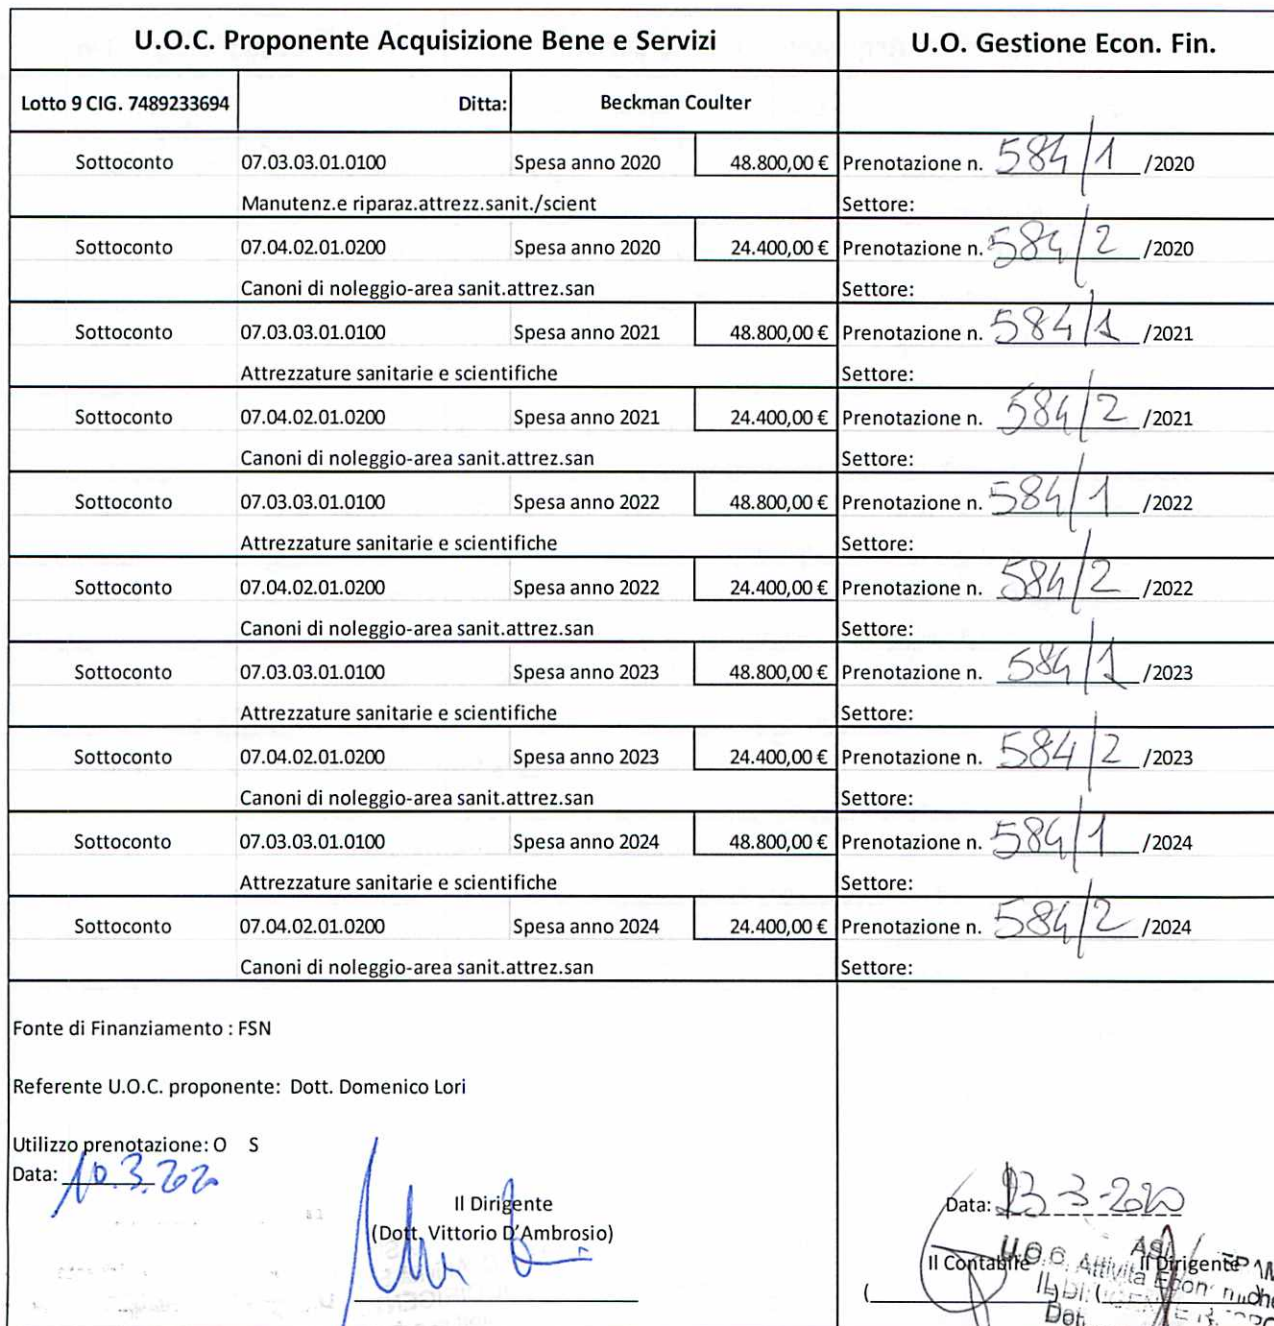 U.O.C. Proponente Acquisizione Bene e Servizi U.O. Gestione Econ. Fin.
Lotto 9 CIG. 7489233694 Ditta: Beckman Coulter
Sottoconto 07.03.03.01.0100 Spesa anno 2020 48.800,00 € Prenotazione n. 584/1 /2020
Manutenz.e riparaz.attrezz.sanit./scient Settore:
Sottoconto 07.04.02.01.0200 Spesa anno 2020 24.400,00 € Prenotazione n. 584/2 /2020
Canoni di noleggio-area sanit.attrez.san Settore:
Sottoconto 07.03.03.01.0100 Spesa anno 2021 48.800,00 € Prenotazione n. 584/1 /2021
Attrezzature sanitarie e scientifiche Settore:
Sottoconto 07.04.02.01.0200 Spesa anno 2021 24.400,00 € Prenotazione n. 584/2 /2021
Canoni di noleggio-area sanit.attrez.san Settore:
Sottoconto 07.03.03.01.0100 Spesa anno 2022 48.800,00 € Prenotazione n. 584/1 /2022
Attrezzature sanitarie e scientifiche Settore:
Sottoconto 07.04.02.01.0200 Spesa anno 2022 24.400,00 € Prenotazione n. 584/2 /2022
Canoni di noleggio-area sanit.attrez.san Settore:
Sottoconto 07.03.03.01.0100 Spesa anno 2023 48.800,00 € Prenotazione n. 584/1 /2023
Attrezzature sanitarie e scientifiche Settore:
Sottoconto 07.04.02.01.0200 Spesa anno 2023 24.400,00 € Prenotazione n. 584/2 /2023
Canoni di noleggio-area sanit.attrez.san Settore:
Sottoconto 07.03.03.01.0100 Spesa anno 2024 48.800,00 € Prenotazione n. 584/1 /2024
Attrezzature sanitarie e scientifiche Settore:
Sottoconto 07.04.02.01.0200 Spesa anno 2024 24.400,00 € Prenotazione n. 584/2 /2024
Canoni di noleggio-area sanit.attrez.san Settore:
Fonte di Finanziamento : FSN
Referente U.O.C. proponente: Dott. Domenico Lori
Utilizzo prenotazione: O S
Data: 10.3.2020
Il Dirigente
(Dott. Vittorio D'Ambrosio)
Data: 23-3-2020
Il Contabile Il Dirigente
U.O.C. Attività